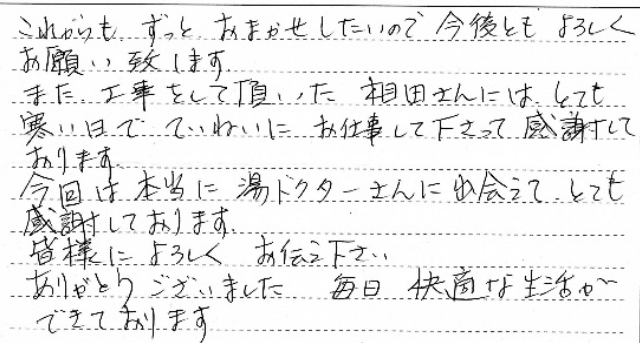 これからも、ずっと おまかせしたいので 今後とも よろしく
お願い致します。
また、工事をして頂いた 相田さんには、とても
寒い日で ていねいに お仕事して下さって 感謝して
おります。
今回は本当に 湯ドクターさんに出会えて、とても
感謝しております。
皆様に よろしく お伝え下さい
ありがとう ございました 毎日 快適な生活が
できております